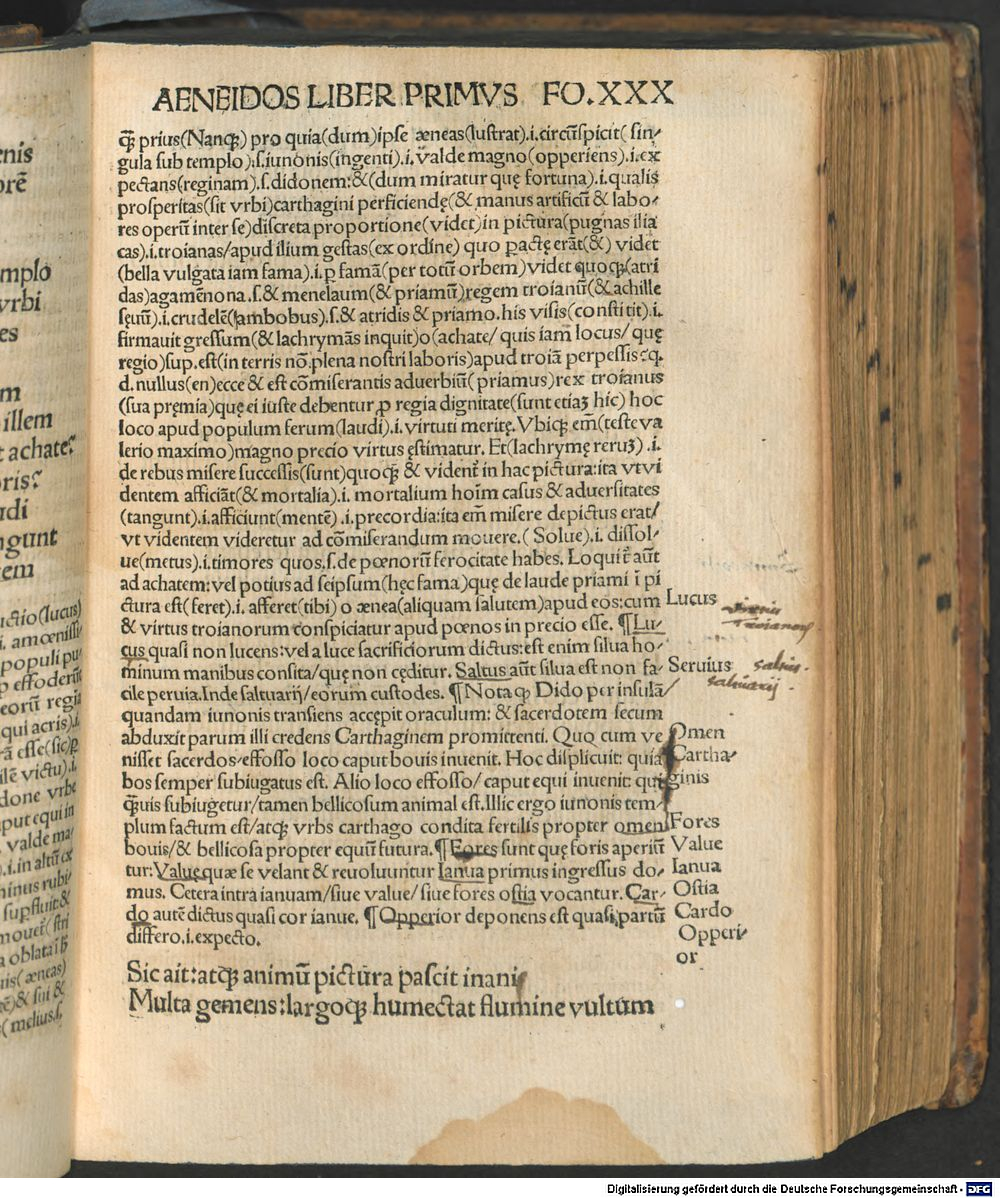 AENEIDOS LIBER PRIMVS FO.XXX
ꝙ̃ prius(Nanqꝫ) pro quia(dum)ipse æneas(lustrat).i.circũspicit( sin/
gula sub templo).s.iunonis(ingenti).i. valde magno(opperiens).i.ex
pectans(reginam).s.didonem:&(dum miratur quę fortuna).i.qualis
prosperitas(sit vrbi)carthagini perficiendę(& manus artificũ & labo/
res operũ inter se)discreta proportione(videt)in pictura(pugnas ilia
cas).i.troianas/apud ilium gestas(ex ordine) quo ꝑactę erãt(&) videt
(bella vulgata iam fama).i.ꝑ famã(per totũ orbem)videt quoqꝫ(atri
das)agamẽnona.s.& menelaum(& priamũ)regem troianũ(& achille
sęuũ).i.crudelẽ(ambobus).s.& atridis & priamo.his visis(constitit).i.
firmauit gressum(& lachrymãs inquit)o(achate/ quis iam locus/ quę
regio)sup.est(in terris nõ plena nostri laboris)apud troiã perpessis:q.
d.nullus(en)ecce & est cõmiserantis aduerbiũ(priamus)rex troianus
(sua pręmia)quę ei iuste debentur ꝓ regia dignitate(sunt etiaꝫ hic) hoc
loco apud populum ferum(laudi).i.virtuti meritę. Vbiqꝫ em̃(teste va
lerio maximo)magno precio virtus ęstimatur. Et(lachrymę reruꝫ) .i.
de rebus misere successis(sunt)quoqꝫ & vident̃ in hac pictura:ita vt vi
dentem afficiãt(& mortalia).i. mortalium hoĩm casus & aduersitates
(tangunt).i.afficiunt(mentẽ) .i.precordia:ita em̃ misere depictus erat/
vt videntem videretur ad cõmiserandum mouere.( Solue).i. dissol/
ue(metus).i.timores quos.s.de pœnorũ ferocitate habes. Loquit̃ aũt
ad achatem:vel potius ad seipsum(hęc fama)quę de laude priami ĩ pi
ctura est(feret).i. afferet(tibi) o ænea(aliquam salutem)apud eos:cum
& virtus troianorum conspiciatur apud pœnos in precio esse. ¶Lu/
cus quasi non lucens:vel a luce sacrificiorum dictus:est enim silua ho/
minum manibus consita/quę non cęditur. Saltus aũt silua est non fa/
cile peruia.Inde saltuarij/eorum custodes. ¶Nota qꝫ Dido per insulã/
quandam iunonis transiens accępit oraculum: & sacerdotem secum
abduxit parum illi credens Carthaginem promittenti. Quo cum ve
nisset sacerdos/effosso loco caput bouis inuenit. Hoc displicuit: quia
bos semper subiugatus est. Alio loco effosso/ caput equi inuenit: qui
ꝙ̃uis subiugetur/tamen bellicosum animal est.Illic ergo iunonis tem/
plum factum est/atqꝫ vrbs carthago condita fertilis propter omen
bouis/& bellicosa propter equũ futura. ¶Fores sunt quę foris aperiũ
tur:Valuę quæ se velant & reuoluuntur Ianua primus ingressus do/
mus. Cetera intra ianuam/siue value/siue fores ostia vocantur. Car/
do autẽ dictus quasi cor ianue. ¶Opperior deponens est quasi partũ
differo.i.expecto.
Sic ait:atqꝫ animũ pictura pascit inani
Multa gemens:largoqꝫ humectat flumine vultum
Lucus
Seruius
saltus.
saltuarij.
Omen
Cartha/
ginis
Fores
Value
Ianua
Ostia
Cardo
Opperi/
or
enis
orẽ
mplo
vrbi
es
m
illem
t achate?
oris?
udi
ngunt
em
Digitalisierung gefördert durch die Deutsche Forschungsgemeinschaft - DFG